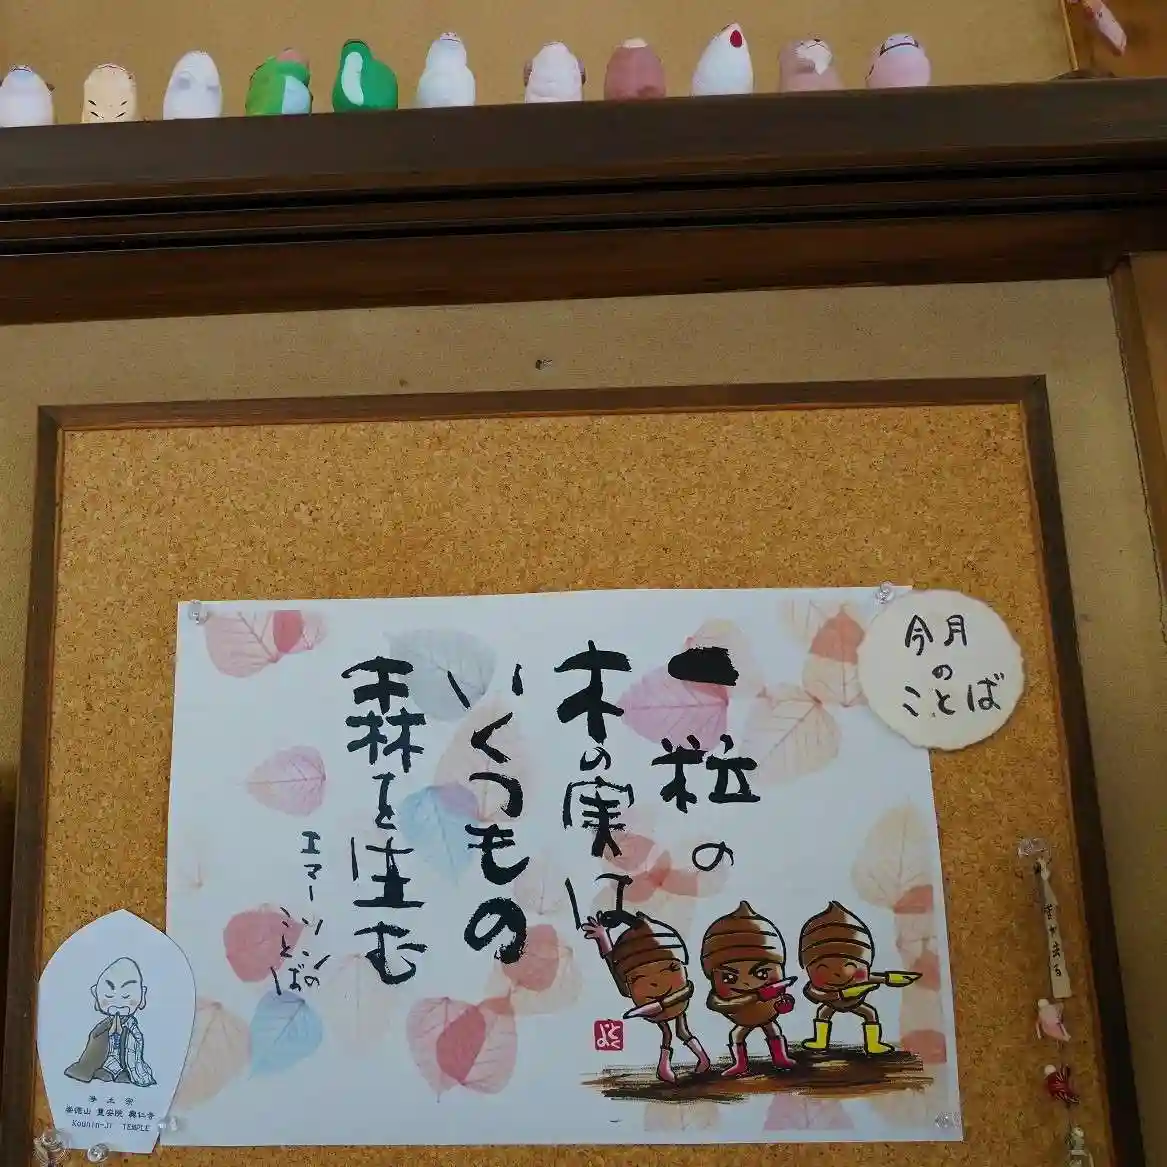 今月
の
ことば
一粒の
木の実は
いくつもの
森を生む
エマーソンの
ことば
とく
よ
浄土宗
豊安院 興仁寺
Kounin-Ji TEMPLE